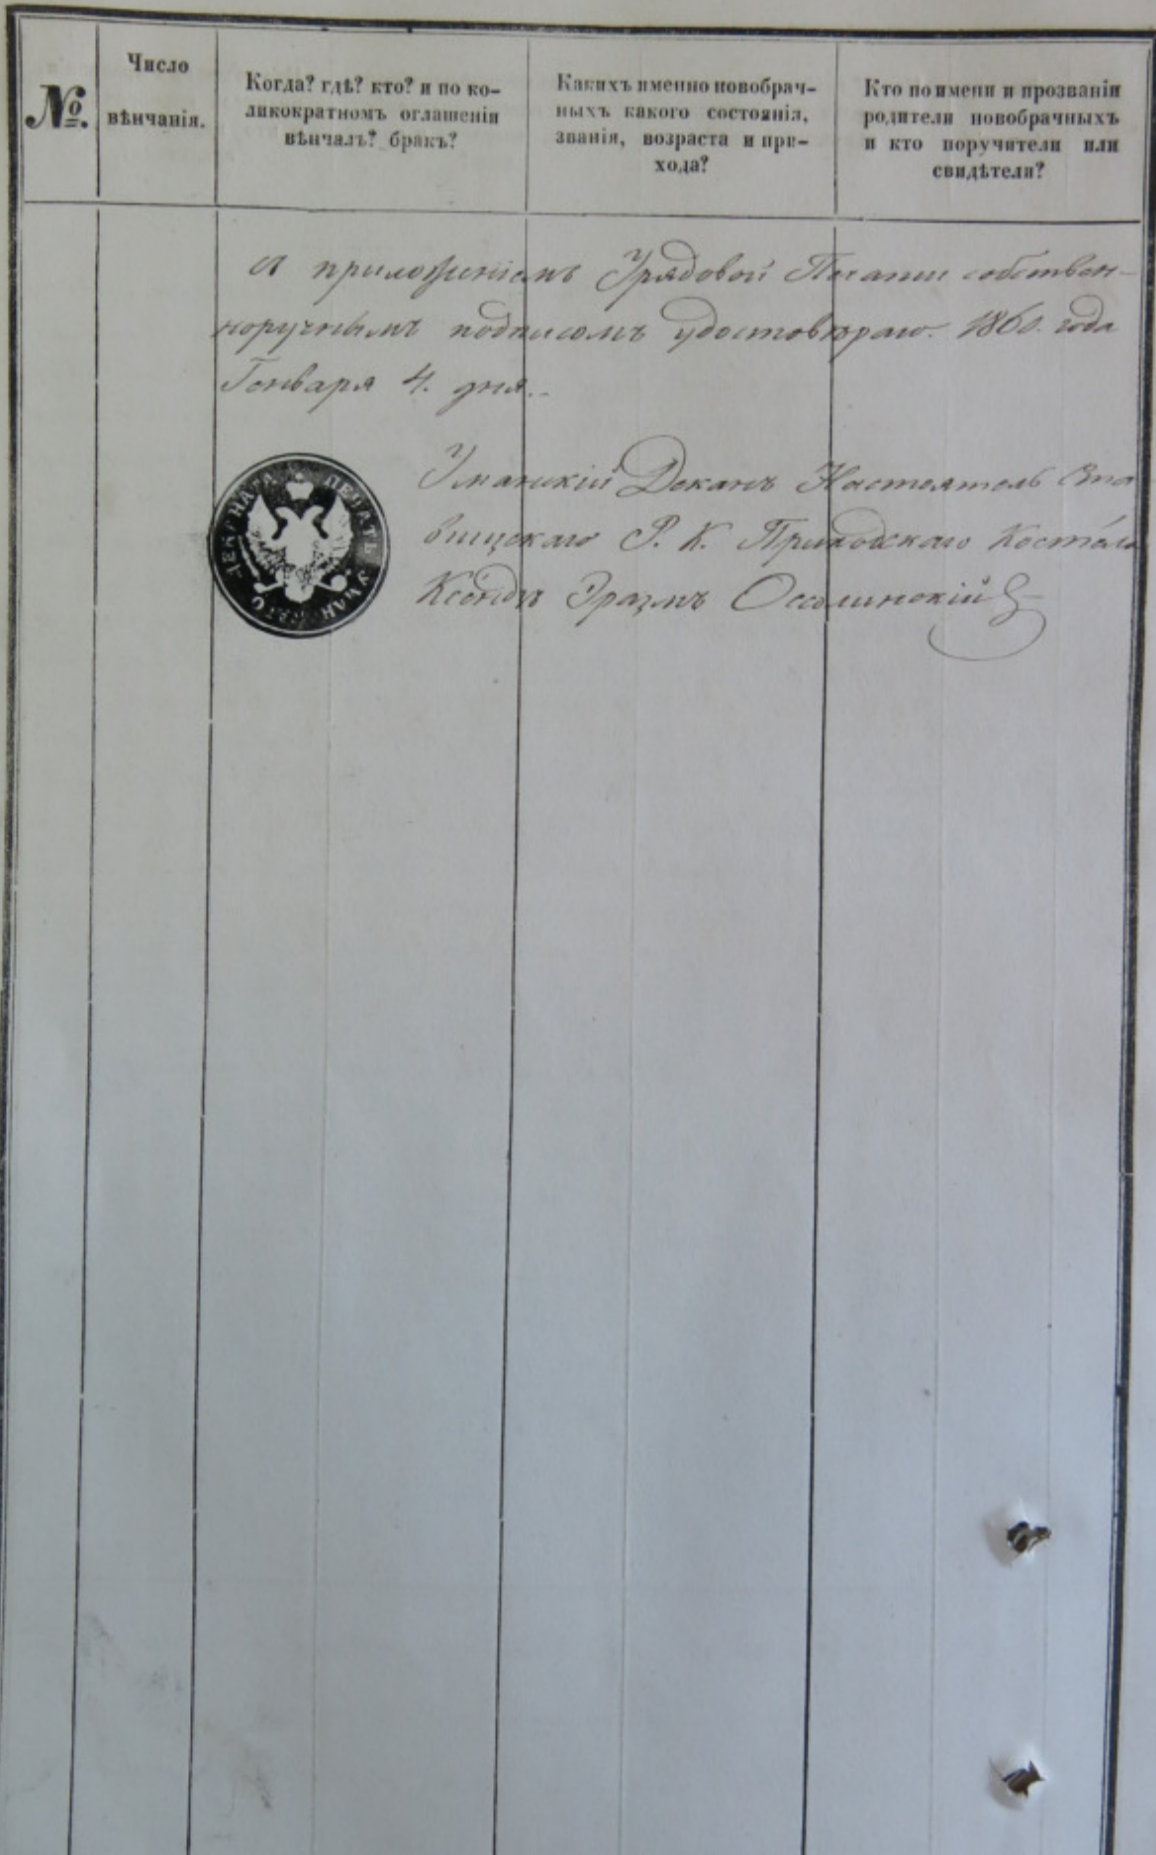 №.
Число
вѣнчанія.
Когда? гдѣ? кто? и по ко-
ликократномъ оглашеніи
вѣнчалъ? бракъ?
Какихъ именно новобрач-
ныхъ какого состоянія,
званія, возраста и при-
хода?
Кто по имени и прозванія
родители новобрачныхъ
и кто поручители или
свидѣтели?
приложеніемъ Урядовой Печати собствен-
норучнымъ подписомъ удостовѣраю. 1860. года
Генваря 4. дня.
Уманскій Деканъ Настоятель
Р. К. Приходскаго Костела
Ксендзъ Эразмъ Оссолинскій
ПЕЧАТЬ УМАНСКАГО ДЕКАНАТА